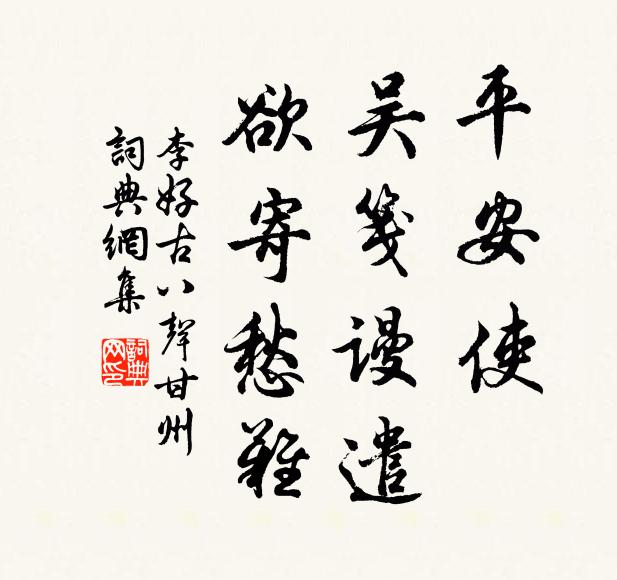 平安使
吴箋謾遣
欲寄愁難
李好古八聲甘州
詞典網集
詞典网印